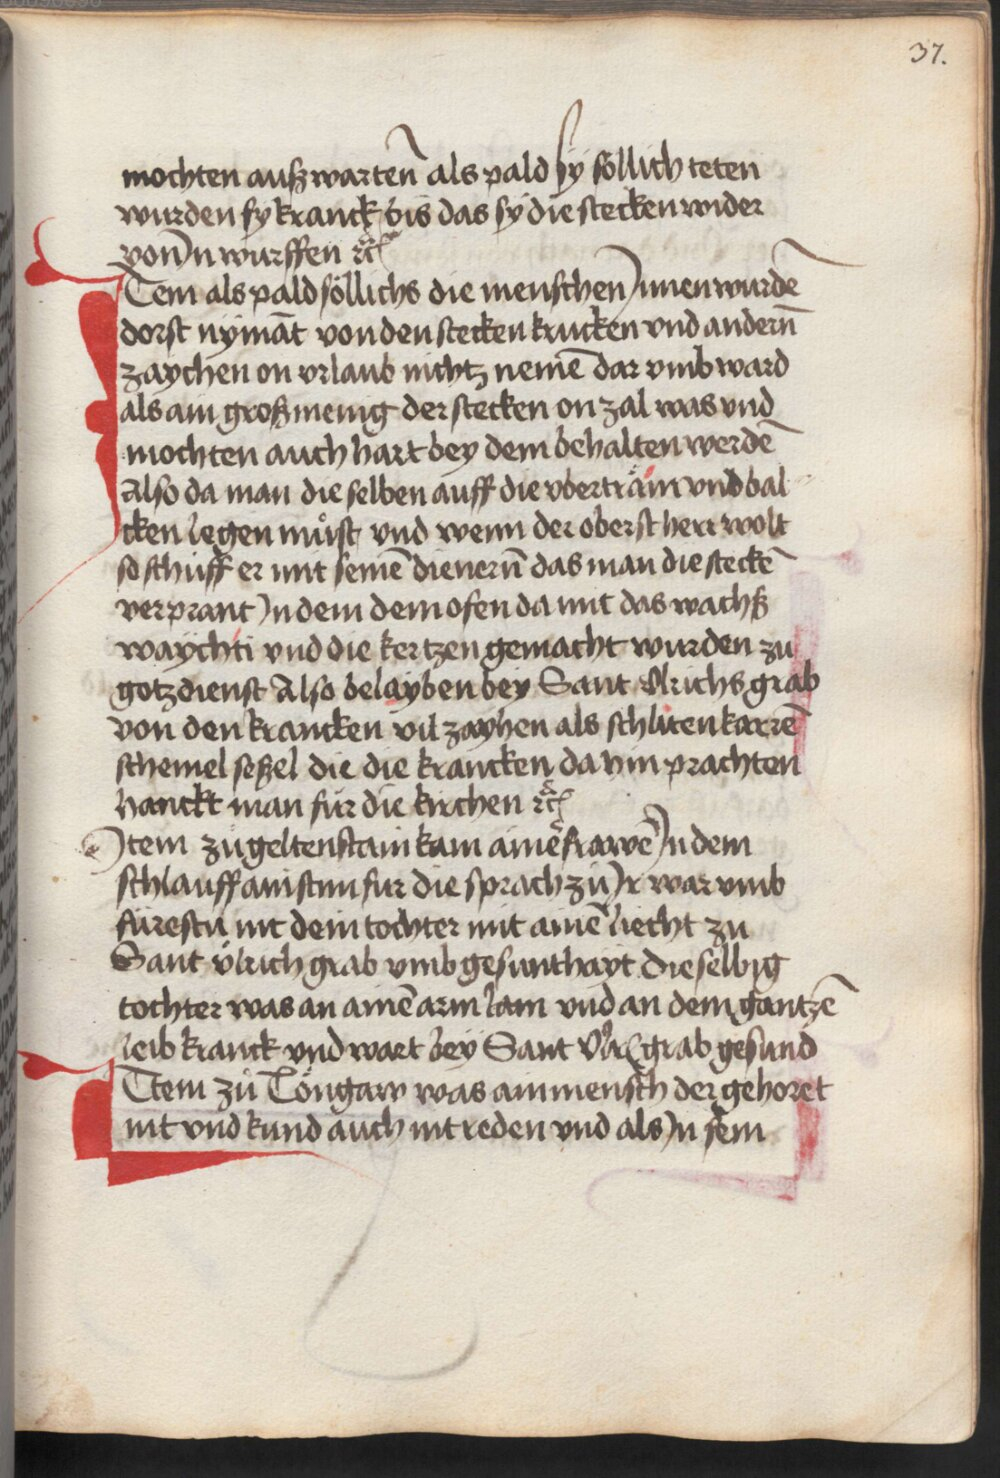 37.
mochten außwarten̄ als pald sy söllich teten
wurden sy kranck bis das sy die stecken wider
von jn wurffen ꝛc
Item als pald söllichs die menschen jnnen wurdē
dorst nymāt von den stecken krucken vnd andern̄
zaychen on vrlaub nichtz nemē dar vmb ward
als ain groß menig der stecken on zal was vnd
mochten auch hart bey dem behalten werdē
Also da man die selben auff die vberträm vnd bal
cken legen müst vnd wenn der oberst herr wolt
so schuff er mit seinē dienern̄ das man die steckē
verprant jn dem dem ofen da mit das wachß
waychti vnd die kertzen gemacht wurden zu
gotzdienst Also belayben bey Sant Vlrichs grab
von den krancken vil zayhen als schliten karrē
schemel seßel die die krancken da hin prachten
hanckt man für die kirchen ꝛc
Item zu geltenstain kam ainē frawē jn dem
schlauff ain stim für die sprach zu jr war vmb
fürestu nit dein tochter mit ainē liecht zu
Sant vlrich grab vmb gesunthayt die selbig
tochter was an ainē arm lam vnd an dem gantzē
leib kranck vnd wart bey Sant Vlr grab gesund
Item zu Töngaw was ain mensch der gehoret
nit vnd kund auch nit reden vnd als jn sein